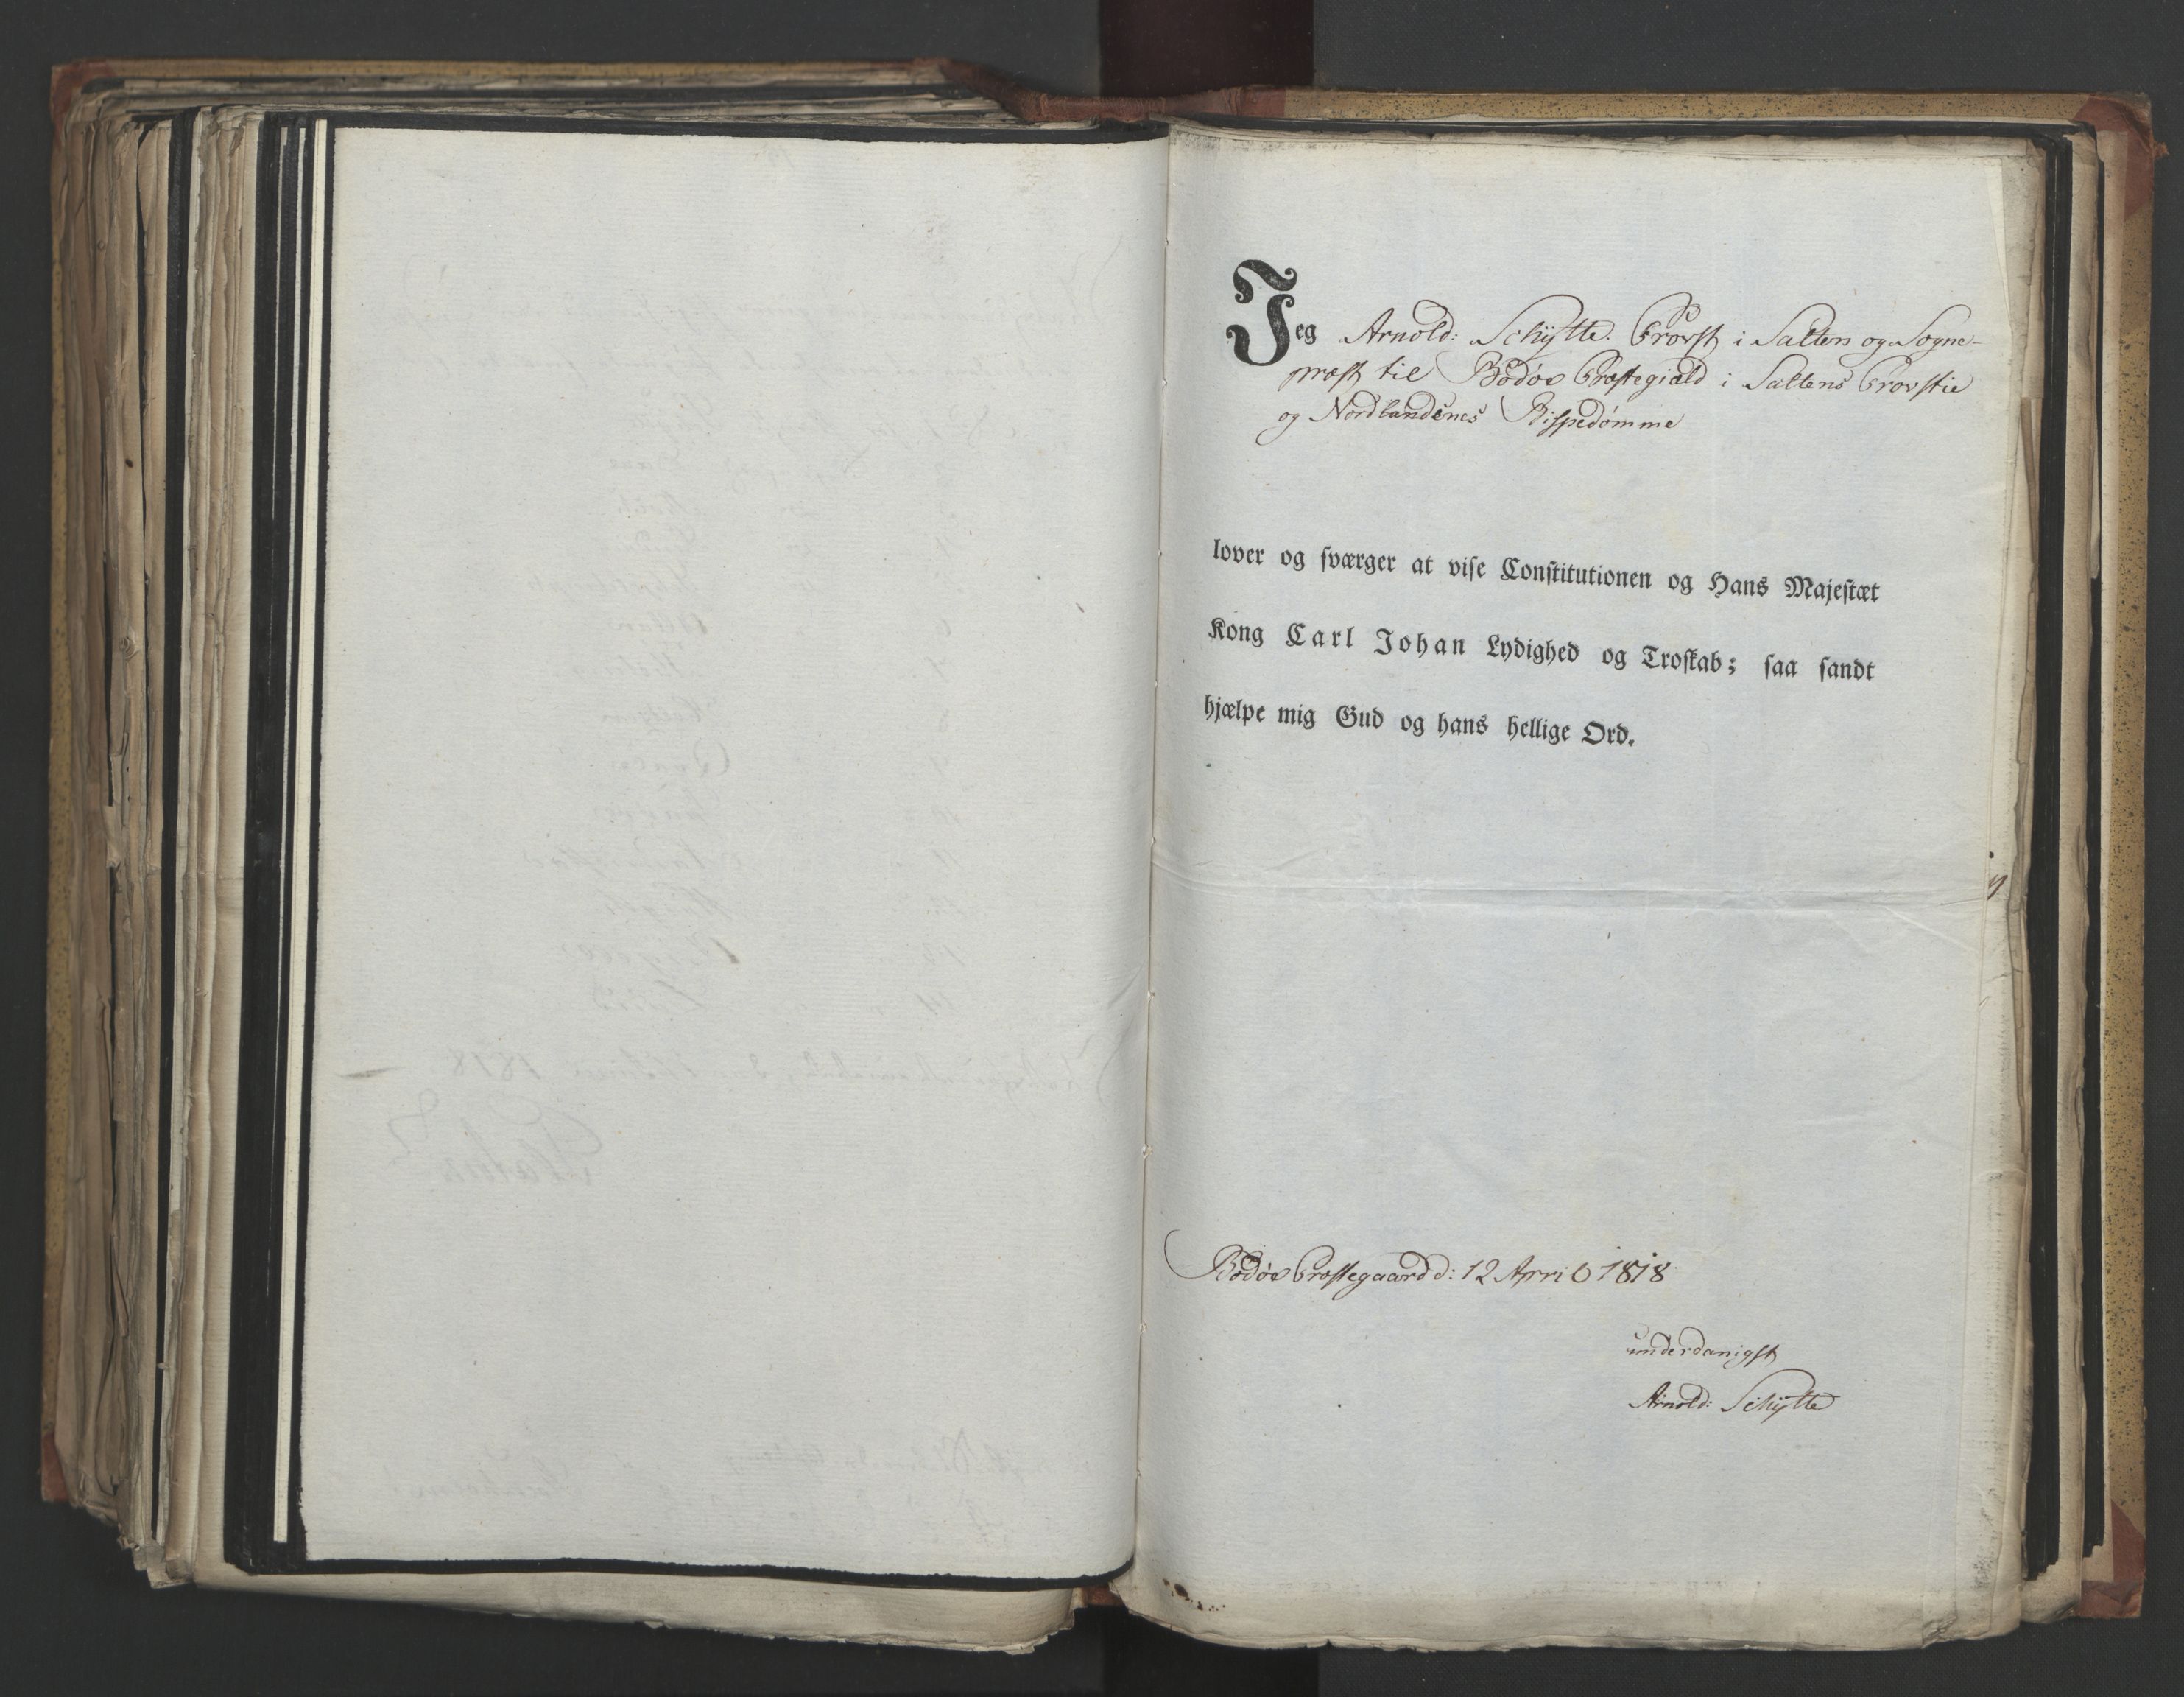 Jeg Arnold: Schÿtte. Provst i Salten og Sogne-
præst til Bodøe Præstegiæld i Saltens Provstie
og Nordlandenes Bispedømme
lover og sværger at vise Constitutionen og Hans Majestæt
Kong Carl Johan Lydighed og Troskab; saa sandt
hjælpe mig Gud og hans hellige Ord.
Bodøe Præstegaard d: 12 April 1818
underdanigst
Arnold: Schÿtte